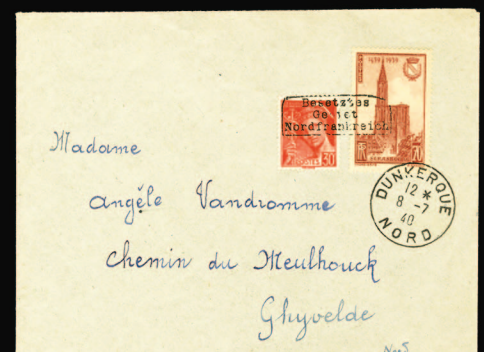 1439 1939
Besetztes
Gebiet
Nordfrankreich
30
70
DUNKERQUE
12 *
8 -7
40
NORD
Madame
Angèle Vandromme
Chemin du Meulhouck
Ghyvelde
Nord